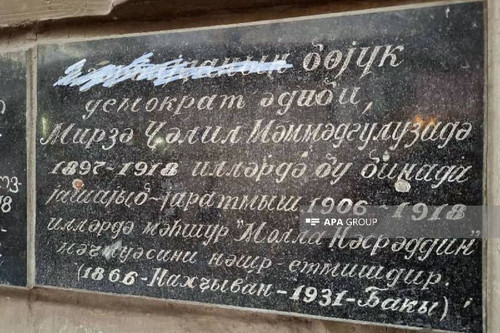 бөјүк
демократ әдиби,
Мирзә Ҹәлил Мәммәдгулузадә
1897-1918 илләрдә бу бинада
јашајыб-јаратмыш 1906-1918
илләрдә мәһшур "Молла Нәсрәддин"
нәшр етмишдир.
(1866-Нахҹыван-1931-Бакы)
APA GROUP